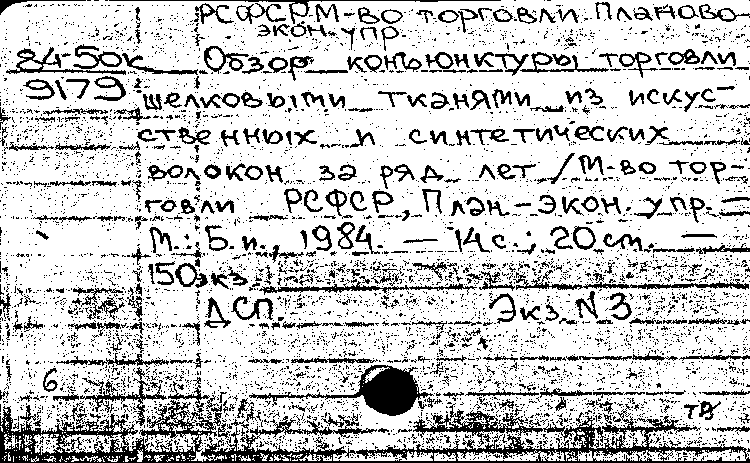 РСФСР М-во торговли. Планово-
экон. упр.
84-50к Обзор конъюнктуры торговли
9179 шелковыми тканями из искус-
ственных и синтетических
волокон за ряд лет / М-во тор-
говли РСФСР, План-экон. упр. –
М.: Б.и., 1984. — 14 с.; 20 см. —
150 экз.
ДСП. Экз. N 3
6